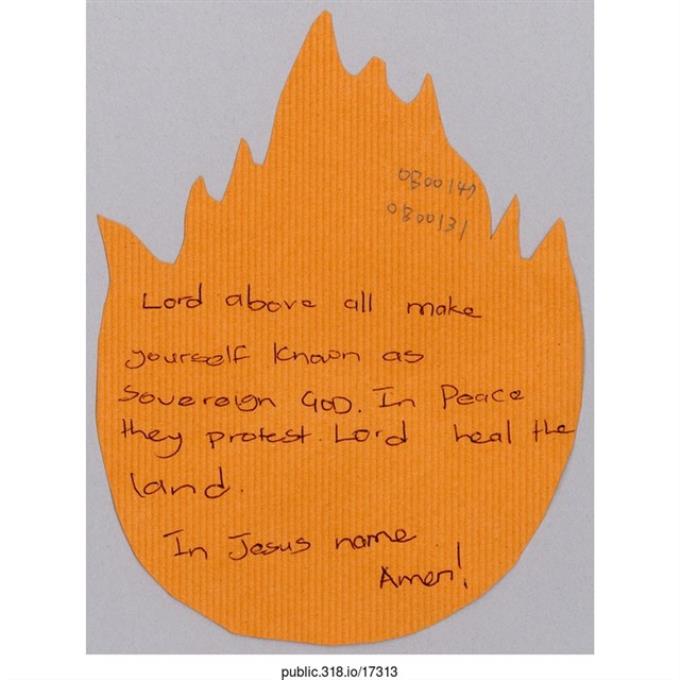 0300147
0300131
Lord above all make
yourself known as
Sovereign GOD. In Peace
they protest. Lord heal the
land.
In Jesus name
Amen!
public.318.io/17313